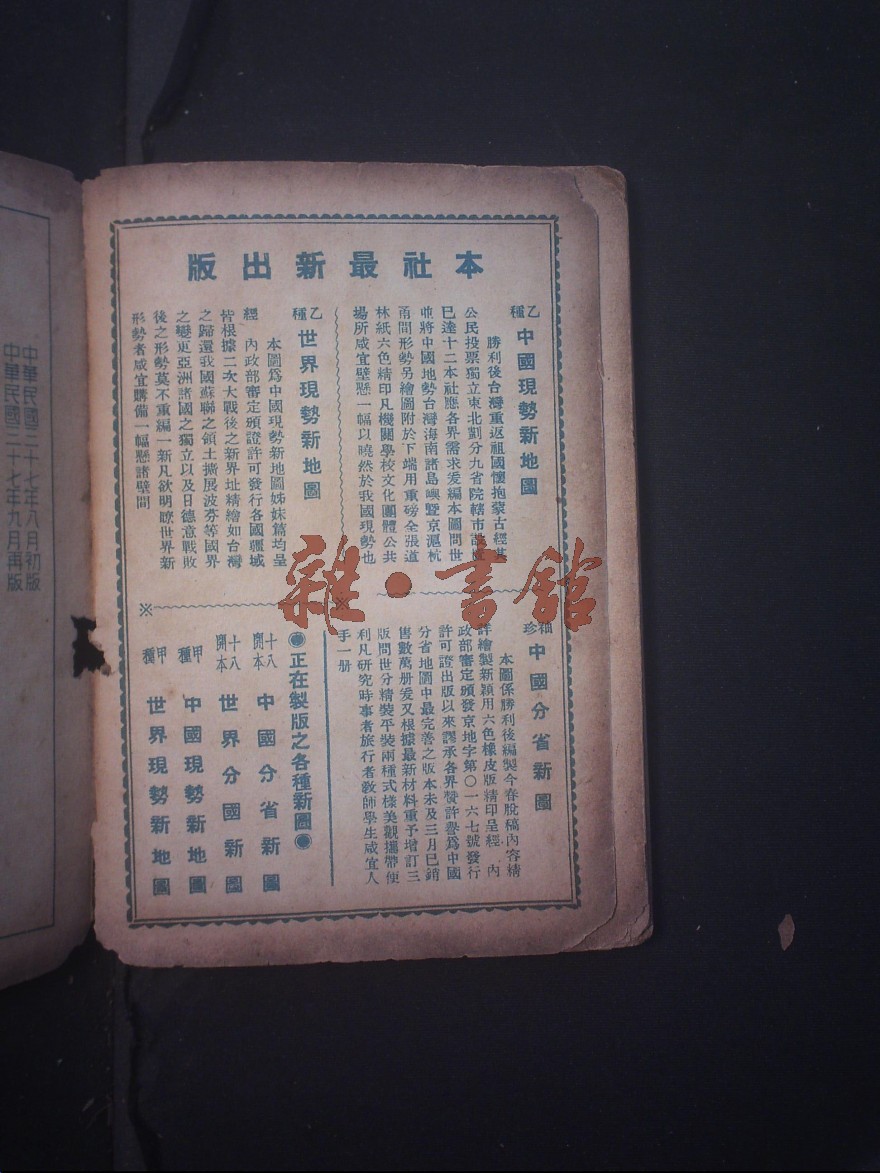 本社最新出版
乙種 中國現勢新地圖
勝利後台灣重返祖國懷抱蒙古經其
公民投票獨立東北劃分九省院轄市
已達十二本社應各界需求爰編本圖問世
並將中國地勢台灣海南諸島嶼暨京滬杭
甬間形勢另繪圖附於下端用重磅全張道
林紙六色精印凡機關學校文化團體公共
場所咸宜壁懸一幅以曉然於我國現勢也
乙種 世界現勢新地圖
本圖爲中國現勢新地圖姊妹篇均呈
經 內政部審定頒證許可發行各國疆域
皆根據二次大戰後之新界址精繪如台灣
之歸還我國蘇聯之領土擴展波芬等國界
之變更亞洲諸國之獨立以及日德意戰敗
後之形勢莫不重編一新凡欲明瞭世界新
形勢者咸宜購備一幅懸諸壁間
袖珍 中國分省新圖
本圖係勝利後編製今春脫稿內容精
詳繪製新穎用六色橡皮版精印呈經 內
政部審定頒發京地字第〇一六七號發行
許可證出版以來謬承各界贊許譽爲中國
分省地圖中最完善之版本未及三月已銷
售數萬册爰又根據最新材料重予增訂三
版問世分精裝平裝兩種式樣美觀攜帶便
利凡研究時事者旅行者教師學生咸宜人
手一册
●正在製版之各種新圖●
十八開本 中國分省新圖
十八開本 世界分國新圖
甲種 中國現勢新地圖
甲種 世界現勢新地圖
中華民國三十七年八月初版
中華民國三十七年九月再版
雜·書館